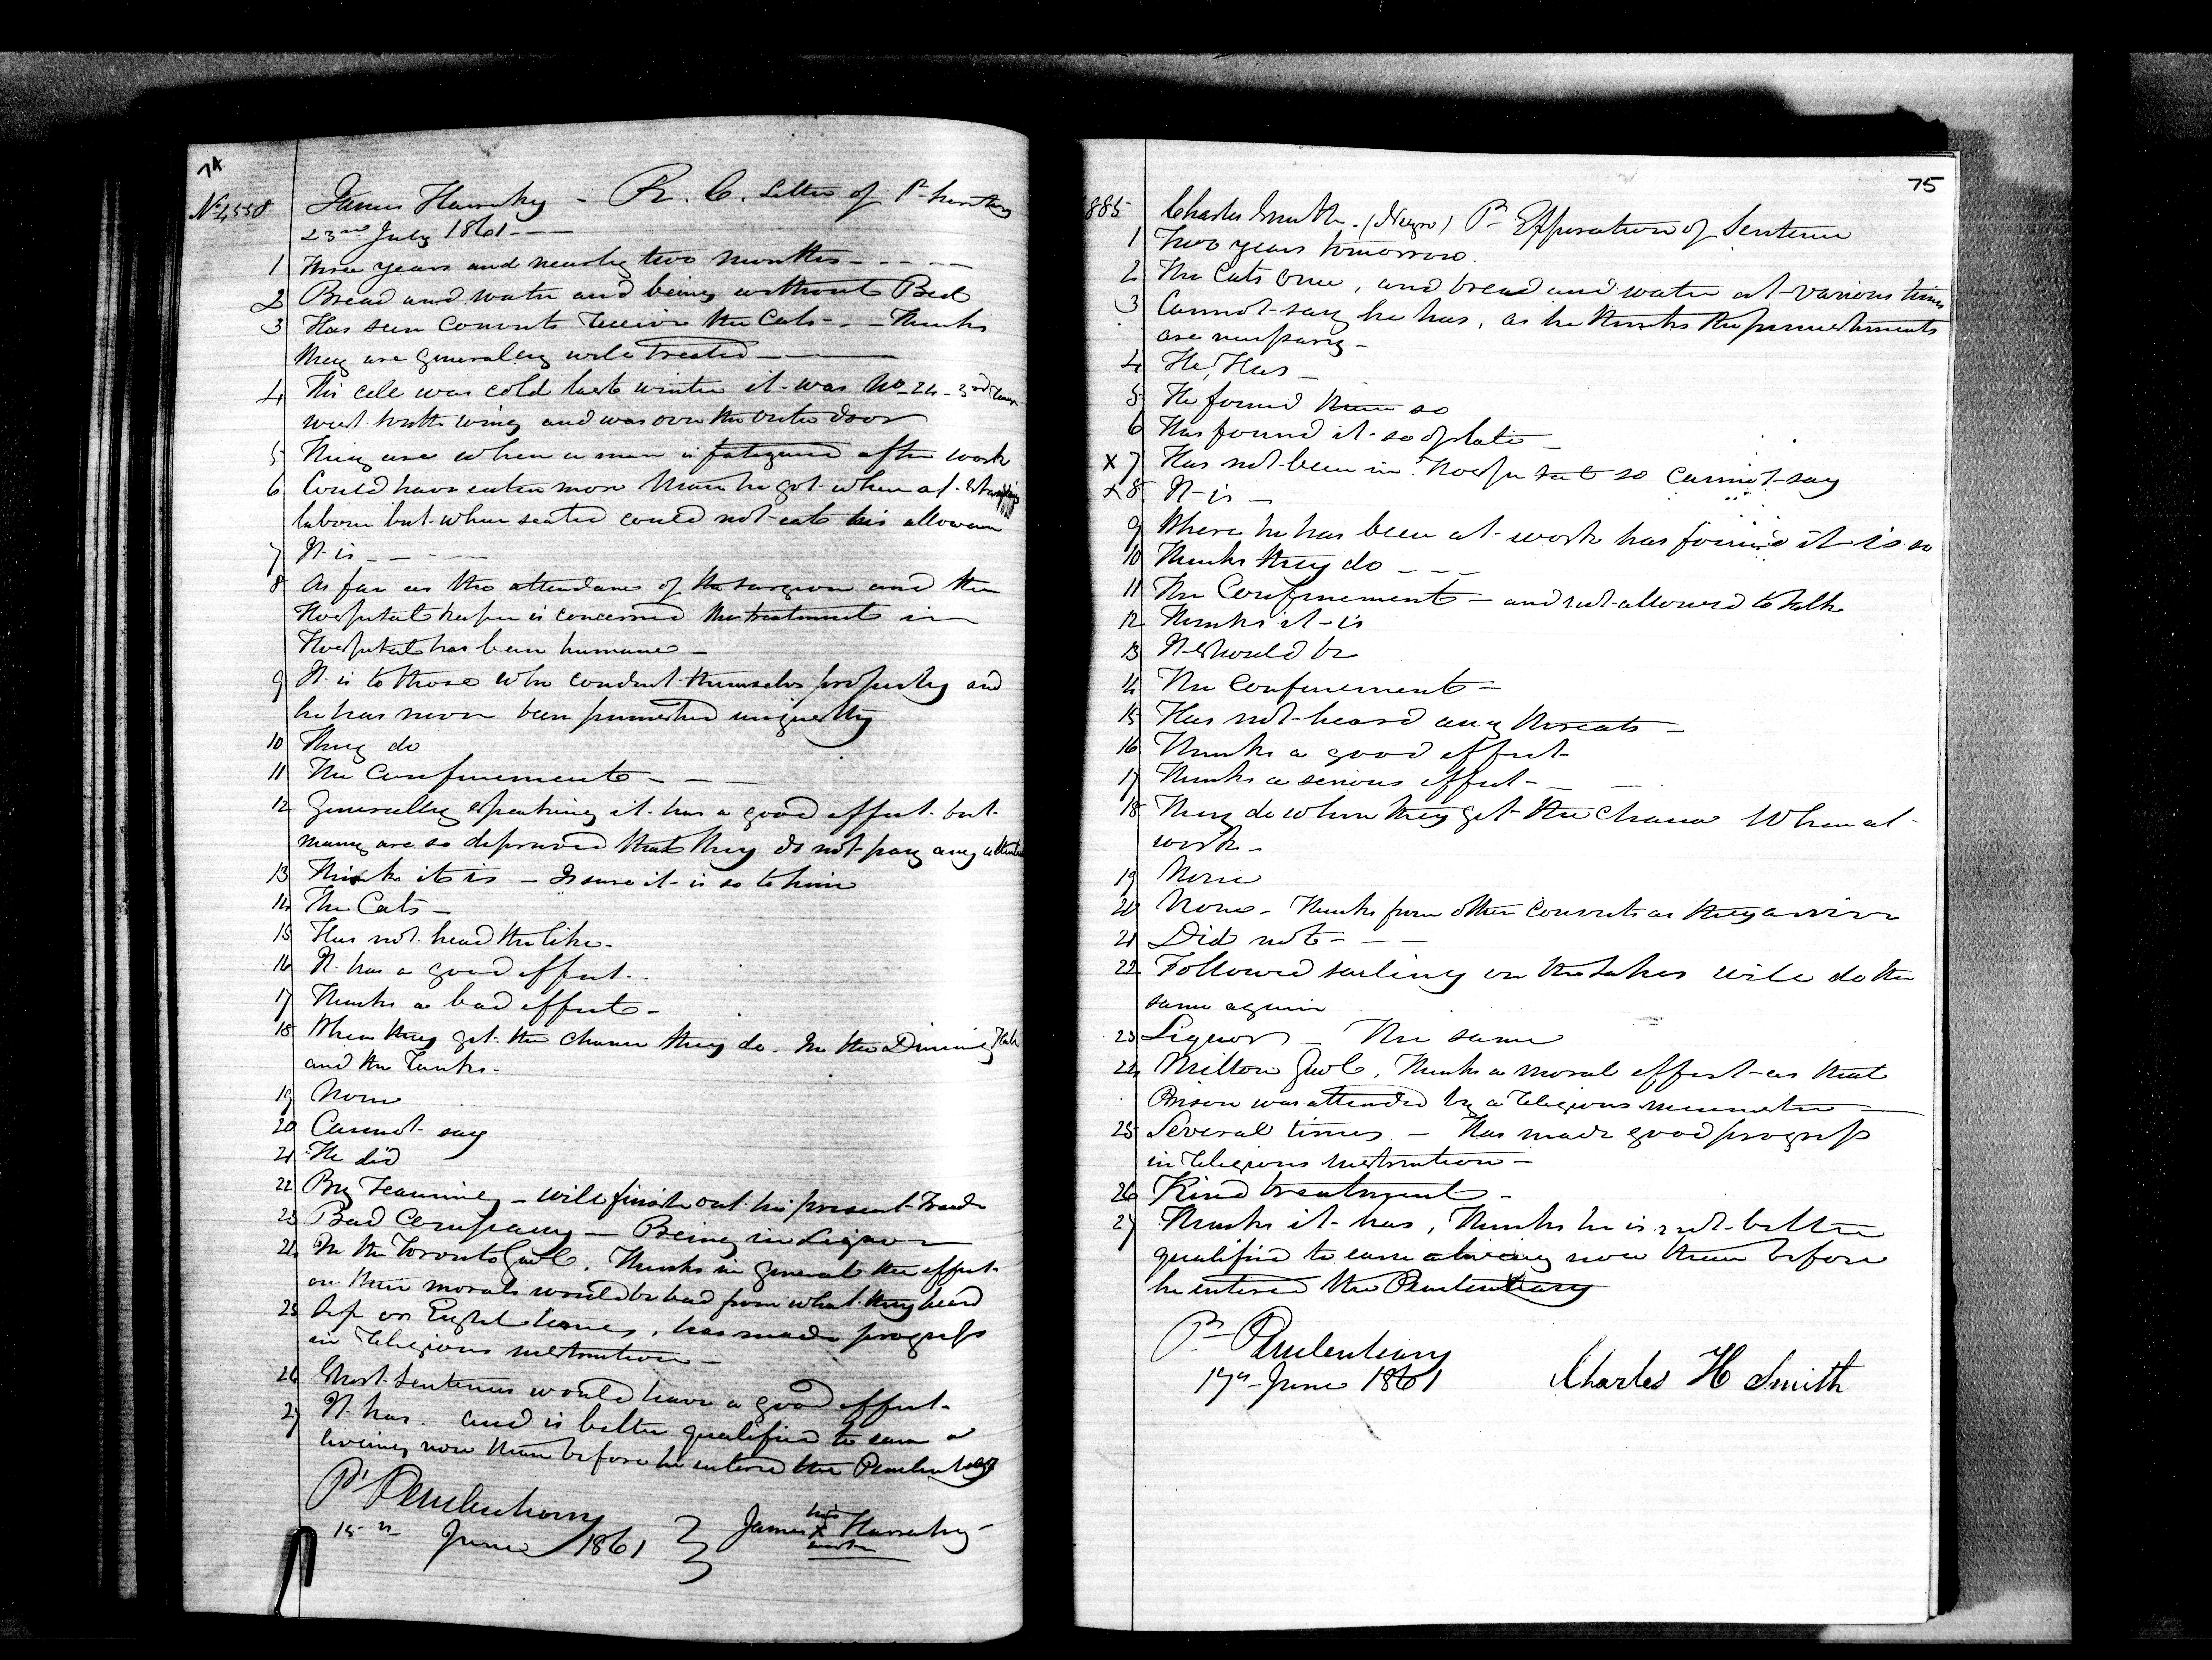 74
No 4558 James Hannahy - R. C. Letter of Pr.
23rd July 1861
1 Three years and nearly two months
2 Bread and water and being without Bed
3 Has seen Convicts receive the Cats - Thinks
they are generally well treated
4 His cell was cold last winter it was No 24 - 3rd
west south wing and was over the outer door
5 They are when a man is fatigued after work
6 Could have eaten more than he got when at
labour but when seated could not eat his allowance
7 It is
8 As far as the attendance of the surgeon and the
Hospital keeper is concerned the treatment in
Hospital has been humane
9 It is to those who conduct themselves properly and
he has never been punished unjustly
10 They do
11 The Confinement
12 Generally speaking it has a good effect but
many are so depraved that they do not pay any attention
13 Thinks it is - Is sure it is so to him
14 The Cats
15 Has not heard the like
16 It has a good effect
17 Thinks a bad effect
18 When they get the chance they do. In the Dining Hall
and the Tanks
19 None
20 Cannot say
21 He did
22 By Teaming - will finish out his present Trade
23 Bad Company - Being in Liquor
24 In the Toronto Gaol. Thinks in general the effect
on their morals would be bad from what they heard
25 Six or Eight times, has made progress
in religious instruction
26 Short Sentences would have a good effect
27 It has. and is better qualified to earn a
living now than before he entered the Penitentiary
Pl Penitentiary
15th June 1861
James his X mark Hannahy
75
885 Charles Smith. (Negro) Pr Expiration of Sentence
1 Two years tomorrow.
2 The Cats once, and bread and water at various times
3 Cannot say he has, as he thinks the punishments
are necessary
4 He Has
5 He found them so
6 Has found it so of late
x 7 Has not been in Hospital so cannot say
x 8 It is
9 Where he has been at work has found it is so
10 Thinks they do
11 The Confinement - and not allowed to talk
12 Thinks it is
13 It should be
14 The Confinement
15 Has not heard any threats
16 Thinks a good effect
17 Thinks a serious effect
18 They do when they get the chance When at
work
19 None
20 None - Thinks from other Convicts as they arrive
21 Did not
22 Followed sailing on the Lakes will do the
same again
23 Liquor - The same
24 Milton Gaol. Thinks a moral effect as that
Prison was attended by a religious minister
25 Several times - Has made good progress
in religious instruction
26 Kind treatment
27 Thinks it has, Thinks he is not better
qualified to earn a living now than before
he entered the Penitentiary
Pl Penitentiary
17th June 1861
Charles H Smith